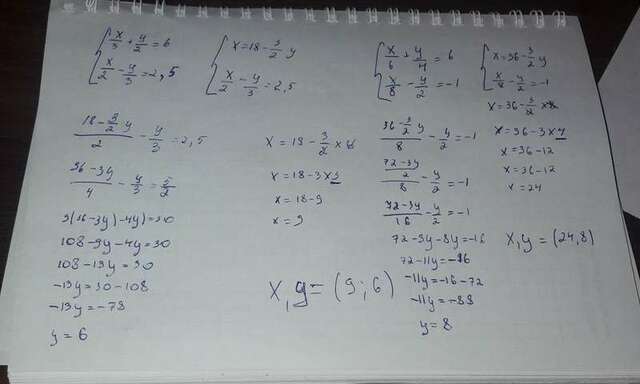 x/3 + y/2 = 6
x/2 - y/3 = 2,5
x = 18 - 3/2 y
x/2 - y/3 = 2,5
(18 - 3/2 y)/2 - y/3 = 2,5
(36 - 3y)/4 - y/3 = 5/2
3(36 - 3y) - 4y) = 30
108 - 9y - 4y = 30
108 - 13y = 30
-13y = 30 - 108
-13y = -78
y = 6
x = 18 - 3/2 × 6
x = 18 - 3 × 3
x = 18 - 9
x = 9
x, y = (9; 6)
x/6 + y/4 = 6
x/8 - y/2 = -1
x = 36 - 3/2 y
x/8 - y/2 = -1
(36 - 3/2 y)/8 - y/2 = -1
(72 - 3y)/2/8 - y/2 = -1
(72 - 3y)/16 - y/2 = -1
72 - 3y - 8y = -16
72 - 11y = -16
-11y = -16 - 72
-11y = -88
y = 8
x = 36 - 3/2 × 8
x = 36 - 3 × 4
x = 36 - 12
x = 36 - 12
x = 24
x, y = (24, 8)